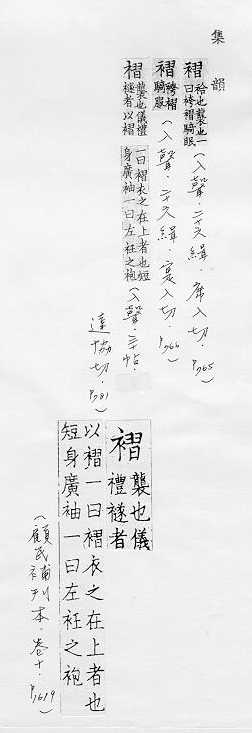 集韻
褶 袷也襲也一曰袴褶騎服(入聲·二十六緝·席入切·P.765)
褶 袴褶騎服(入聲·二十六緝·寔入切·P.766)
褶 襲也儀禮襚者以褶一曰褶衣之在上者也短身廣袖一曰左衽之袍(入聲·三十帖·
達協切·P.781)
褶 襲也儀禮襚者
以褶一曰褶衣之在上者也
短身廣袖一曰左衽之袍
(顧氏補刊本·卷十·P.1619)